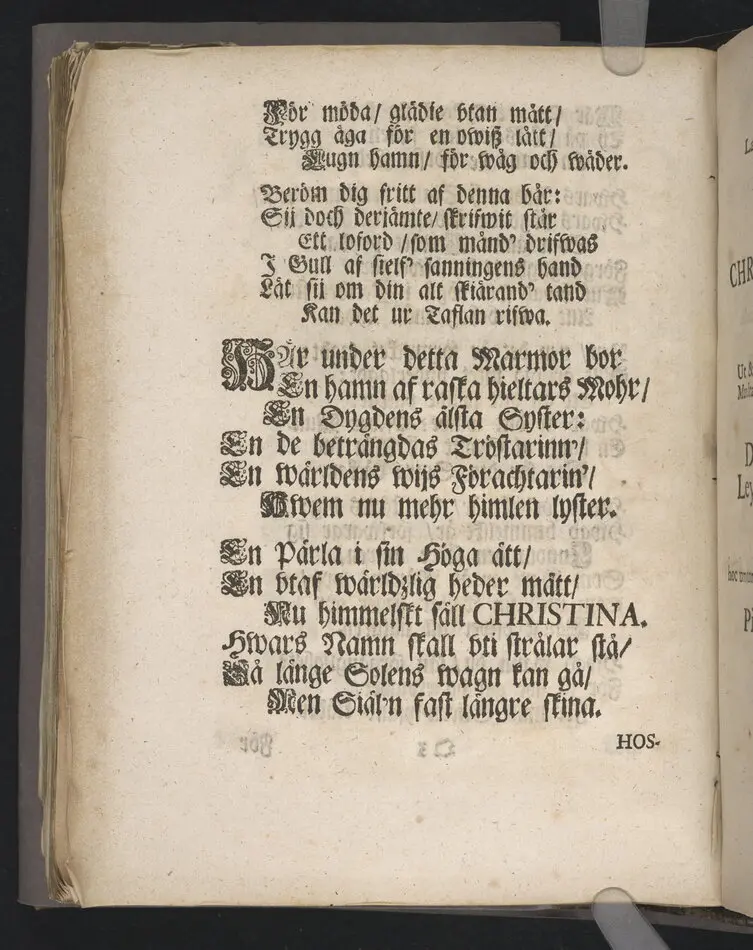 För möda/ glädie vtan mått/
Trygg äga för en owiß lått/
Lugn hamn/ för wåg och wäder.
Beröm dig fritt af denna bår:
Sij doch derjämte/ skrifwit står
Ett loford /som månd' drifwas
I Gull af sielf' sanningens hand
Låt sij om din alt skiärand' tand
Kan det ur Taflan rifwa.
HÄr under detta Marmor bor
En hamn af raska hieltars Mohr/
En Dygdens älsta Syster:
En de beträngdas Tröstarinn'/
En wärldens wijs Förachtarin'/
Hwem nu mehr himlen lyster.
En Pärla i sin Höga ätt/
En vtaf wärldzlig heder mätt/
Nu himmelskt säll CHRISTINA.
Hwars Namn skall vti strålar stå/
Så länge Solens wagn kan gå/
Men Siäl'n fast längre skina.
HOS-
CHR
Ut &
D
Ley
hoc